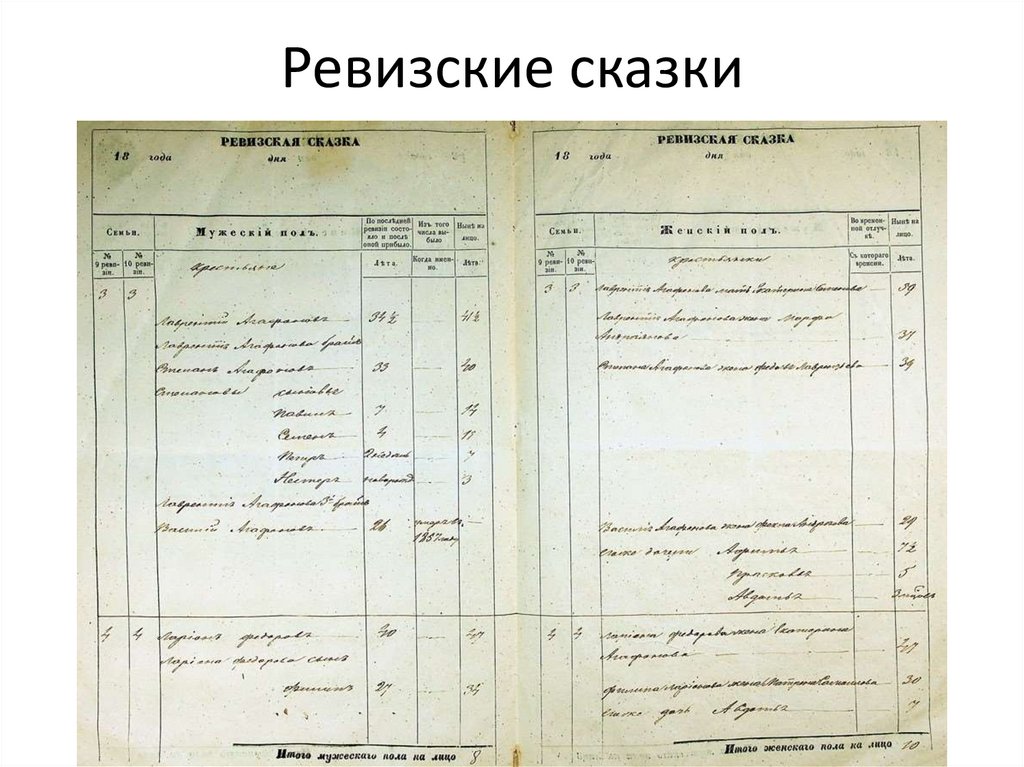 Ревизские сказки
РЕВИЗСКАЯ СКАЗКА
18 года дня
Семьи. Мужескій полъ. По послѣдней ревизіи состояло и послѣ оной прибыло. Изъ того числа выбыло Нынѣ на лицо.
№ 9 ревизіи. № 10 ревизіи. Крестьяне Лѣта. Когда именно. Лѣта
3 3
Лаврентій Агафоновъ 34½ 41½
Лаврентія Агафонова
Степанъ Агафоновъ 33 40
Степановы сыновья
7 14
Семенъ 4 11
Петръ 7
Нестеръ 3
Лаврентія Агафонова
Василій Агафоновъ 26
1857 году
4 4 Ларіонъ Федоровъ 40 47
Ларіона Федорова сынъ
Филипъ 27 34
Итого мужескаго пола на лицо 8
РЕВИЗСКАЯ СКАЗКА
18 года дня
Семьи. Женскій полъ. Во временной отлучкѣ. Нынѣ на лицо.
№ 9 ревизіи. № 10 ревизіи. Крестьянки Съ котораго времени. Лѣта.
3 3 Лаврентія Агафонова мать Екатерина 59
Лаврентія Агафонова жена Марфа
37
Степана Агафонова жена Федосья 39
Василія Агафонова жена 29
дочери 7½
Прасковья 5
Авдотья
4 4 Ларіона Федорова жена Екатерина
Агафонова 47
Филипа Ларіонова жена Матрена 30
дочь Авдотья 7
Итого женскаго пола на лицо 10